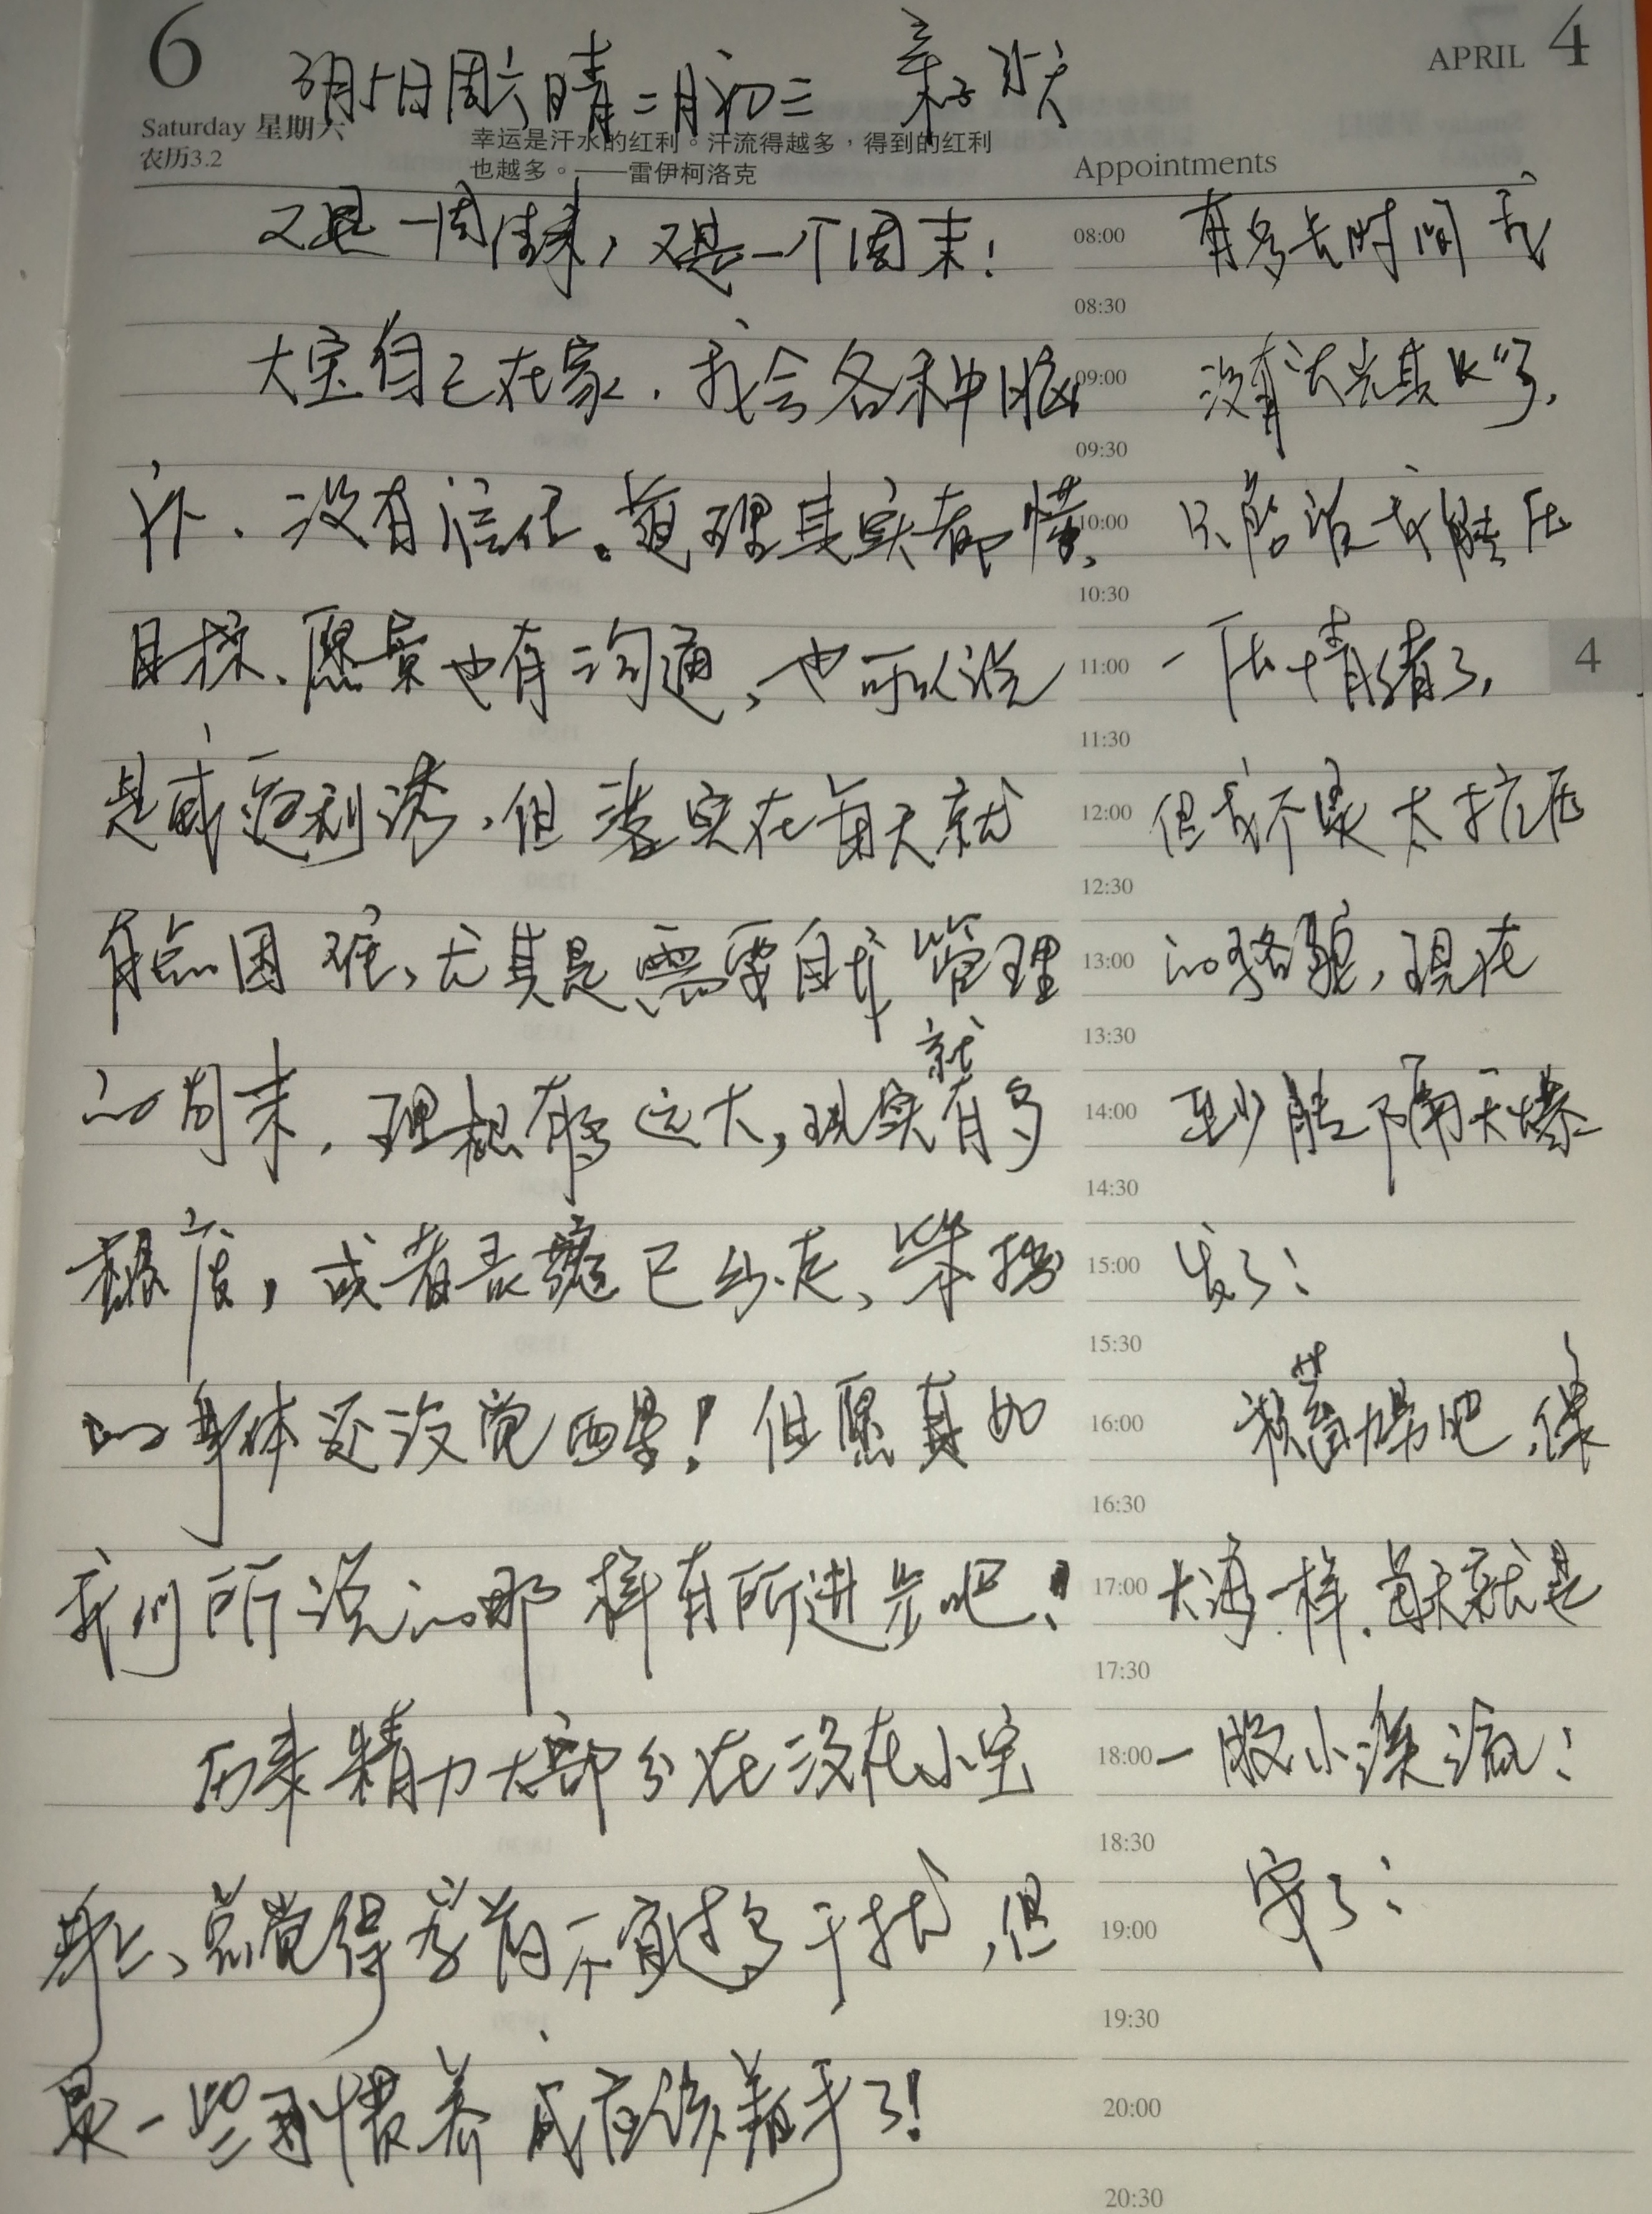 6
3月5日周六晴二月初三 亲子状
APRIL 4
Saturday 星期六
农历3.2
幸运是汗水的红利。汗流得越多，得到的红利
也越多。——雷伊柯洛克
Appointments
又是一周结束，又是一个周末！
大宝自己在家，我会各种脑
补、没有信任。道理其实都懂、
目标、愿景也有沟通，也可以说
是威逼利诱，但落实在每天就
有点困难，尤其是需要自我管理
的周末，理想有多远大，现实就有多
糙，或者灵魂已出走、笨拙
的身体还没觉醒！但愿真如
我们所说的那样有所进步吧！
历来精力大部分在没在小宝
身上、总觉得学前不宜过多干扰，但
是一些习惯养成应该着手了！
08:00
08:30
09:00
09:30
10:00
10:30
11:00
11:30
12:00
12:30
13:00
13:30
14:00
14:30
15:00
15:30
16:00
16:30
17:00
17:30
18:00
18:30
19:00
19:30
20:00
20:30
有多长时间我
没有大光其火了，
只能说我能压
一压情绪了，
但我不是太抗压
的骆驼，现在
至少能隔天爆
发了！
积蓄吧，像
大海一样，每天就是
一股小溪流！
安了！
4